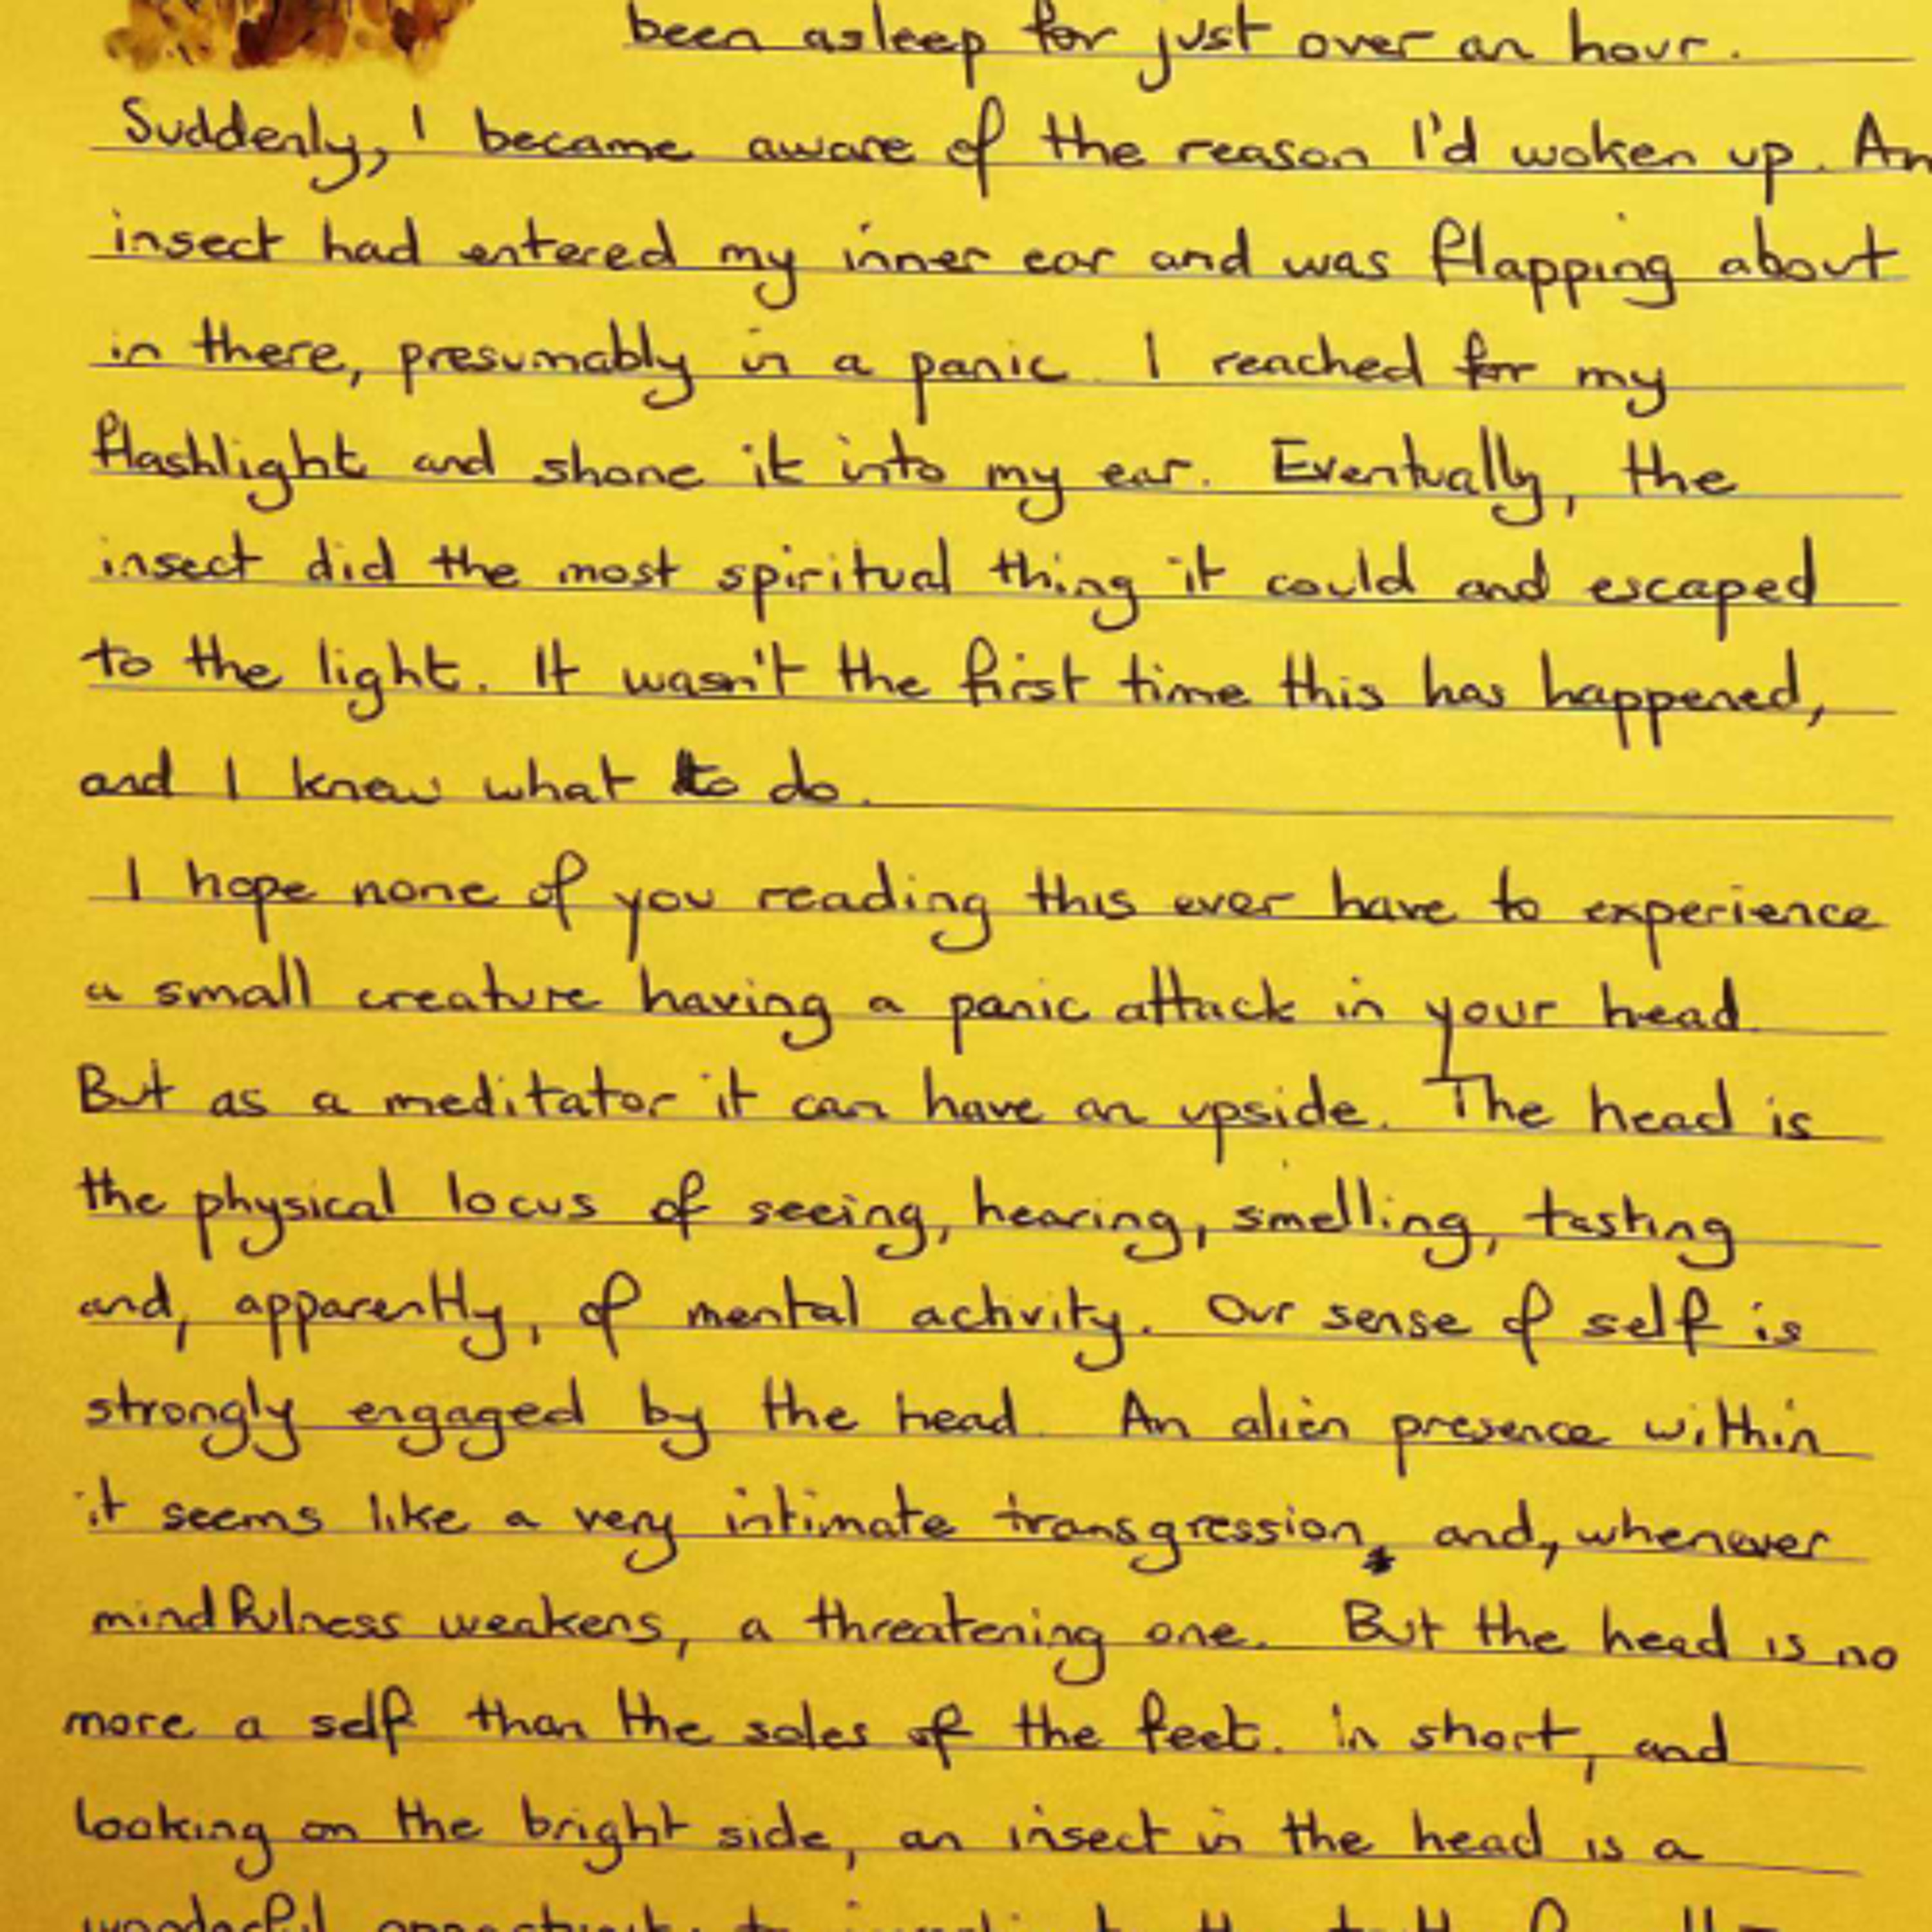 been asleep for just over an hour.
Suddenly, I became aware of the reason I'd woken up. An
insect had entered my inner ear and was flapping about
in there, presumably in a panic. I reached for my
flashlight and shone it into my ear. Eventually, the
insect did the most spiritual thing it could and escaped
to the light. It wasn't the first time this has happened,
and I knew what to do.
I hope none of you reading this ever have to experience
a small creature having a panic attack in your head.
But as a meditator it can have an upside. The head is
the physical locus of seeing, hearing, smelling, tasting
and, apparently, of mental activity. Our sense of self is
strongly engaged by the head. An alien presence within
it seems like a very intimate transgression, and, whenever
mindfulness weakens, a threatening one. But the head is no
more a self than the soles of the feet. in short, and
looking on the bright side, an insect in the head is a
wonderful opportunity to